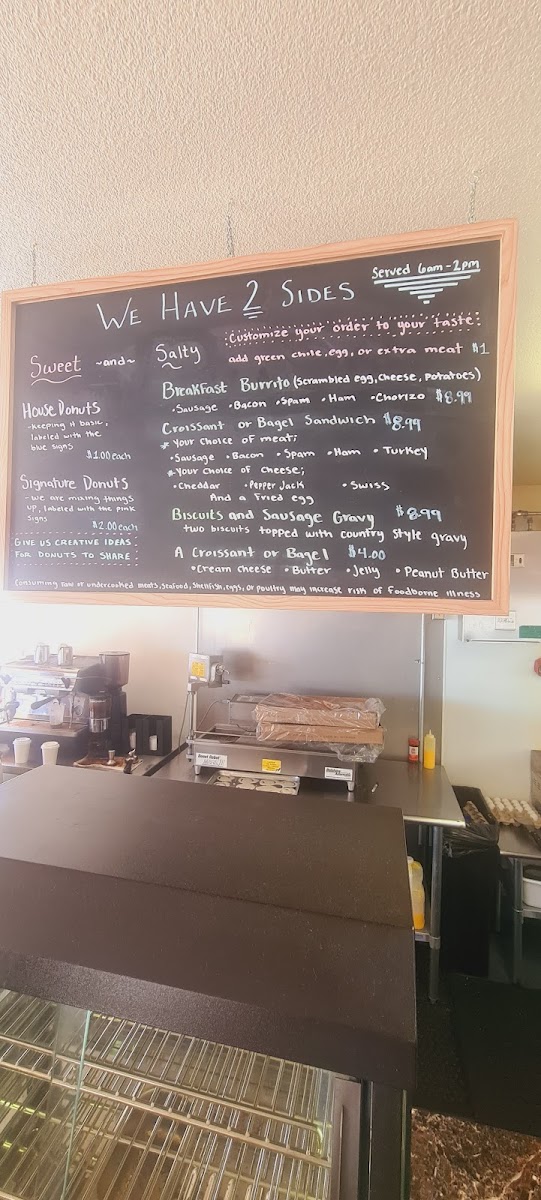 WE HAVE 2 SIDES
Served 6am-2pm
Sweet ~and~ Salty
Customize your order to your taste:
add green chile, egg, or extra meat $1
House Donuts
-keeping it basic,
labeled with the
blue signs
$1.00 each
Signature Donuts
-we are mixing things
up, labeled with the pink
signs
$2.00 each
GIVE US CREATIVE IDEAS
FOR DONUTS TO SHARE
Breakfast Burrito (Scrambled egg, cheese, potatoes)
•Sausage •Bacon •Spam •Ham •Chorizo $8.99
Croissant or Bagel Sandwich $8.99
*Your choice of meat;
•Sausage •Bacon •Spam •Ham •Turkey
*Your choice of cheese;
•Cheddar •Pepper Jack •Swiss
And a Fried egg
Biscuits and Sausage Gravy $8.99
two biscuits topped with country style gravy
A Croissant or Bagel $4.00
•Cream cheese •Butter •Jelly •Peanut Butter
Consuming raw or undercooked meats, seafood, shellfish, eggs, or poultry may increase risk of foodborne illness